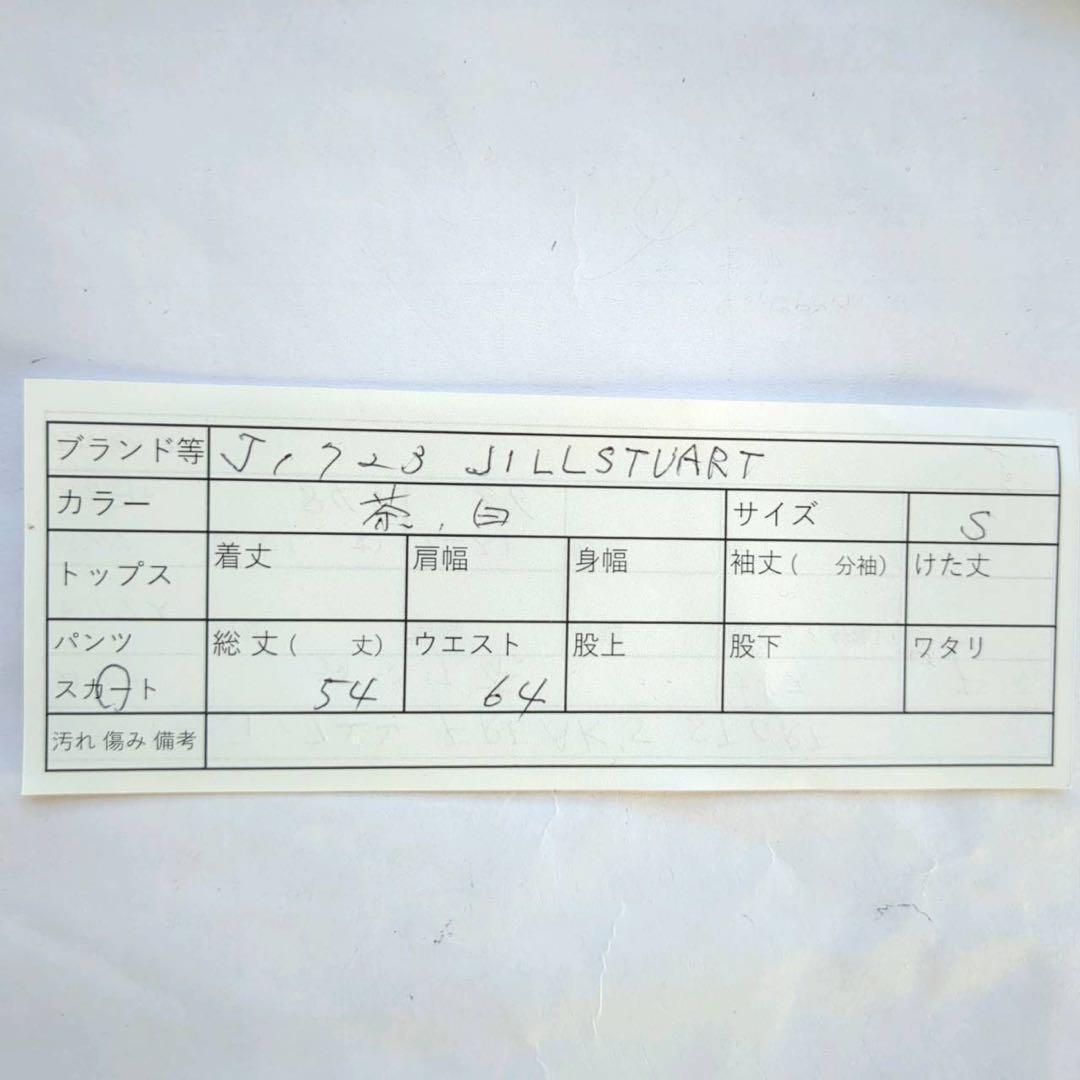 ブランド等 J1723 JILLSTUART
カラー 茶、白 サイズ S
トップス 着丈 肩幅 身幅 袖丈( 分袖) けた丈
パンツ 総丈( 丈) ウエスト 股上 股下 ワタリ
スカート 54 64
汚れ 傷み 備考